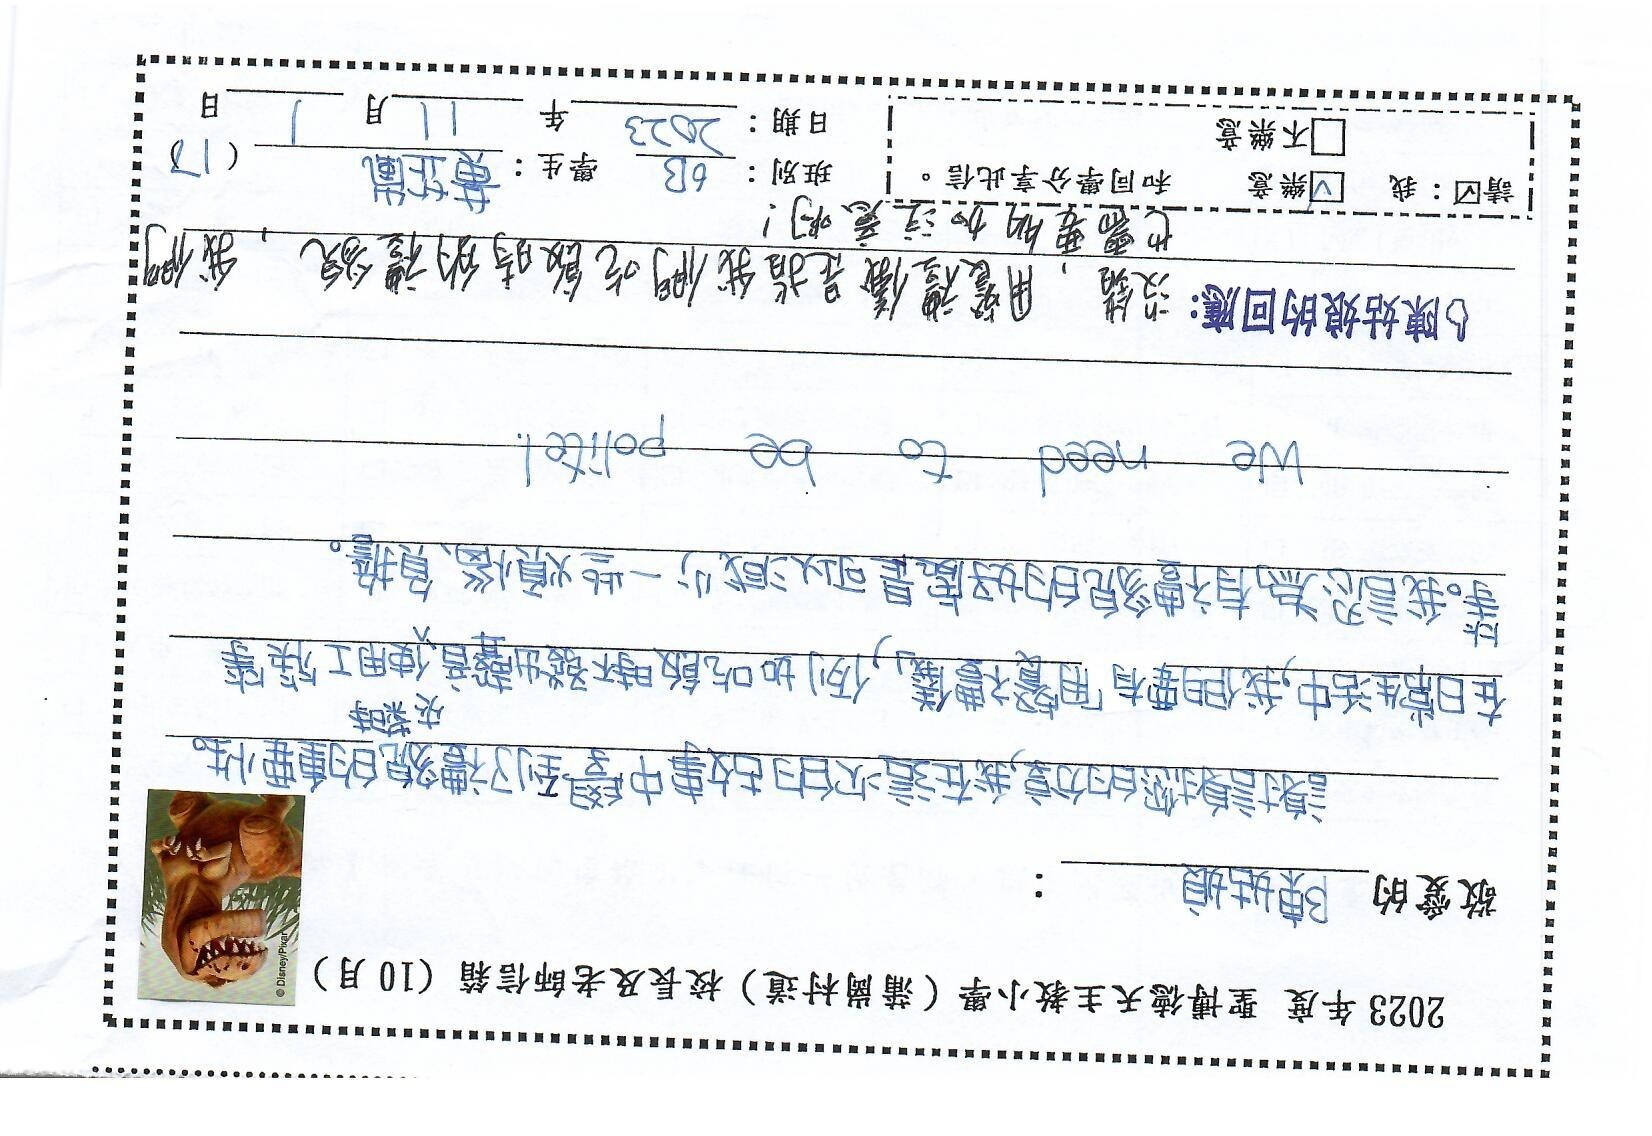 2023 年度 聖博德天主教小學（蒲崗村道）校長及老師信箱（10 月）
© Disney/Pixar
敬愛的 陳姑娘：
謝謝您的分享,我在這次的故事中學到了禮貌的重要性。
在日常生活中,我們要有「用餐禮儀」,例如吃飯時不發出聲音、使用工筷等
夾菜時
等。我認為有禮貌的好處是可以減少一些煩惱、負擔。
We need to be polite!
陳姑娘的回應: 沒錯，用餐禮儀是指我們吃飯時的禮貌，我們
也需要多加注意啊！
請☑：我 ☑樂意 和同學分享此信。
□不樂意
班別：6B 學生：黃芷 (17)
日期：2023 年 11 月 1 日